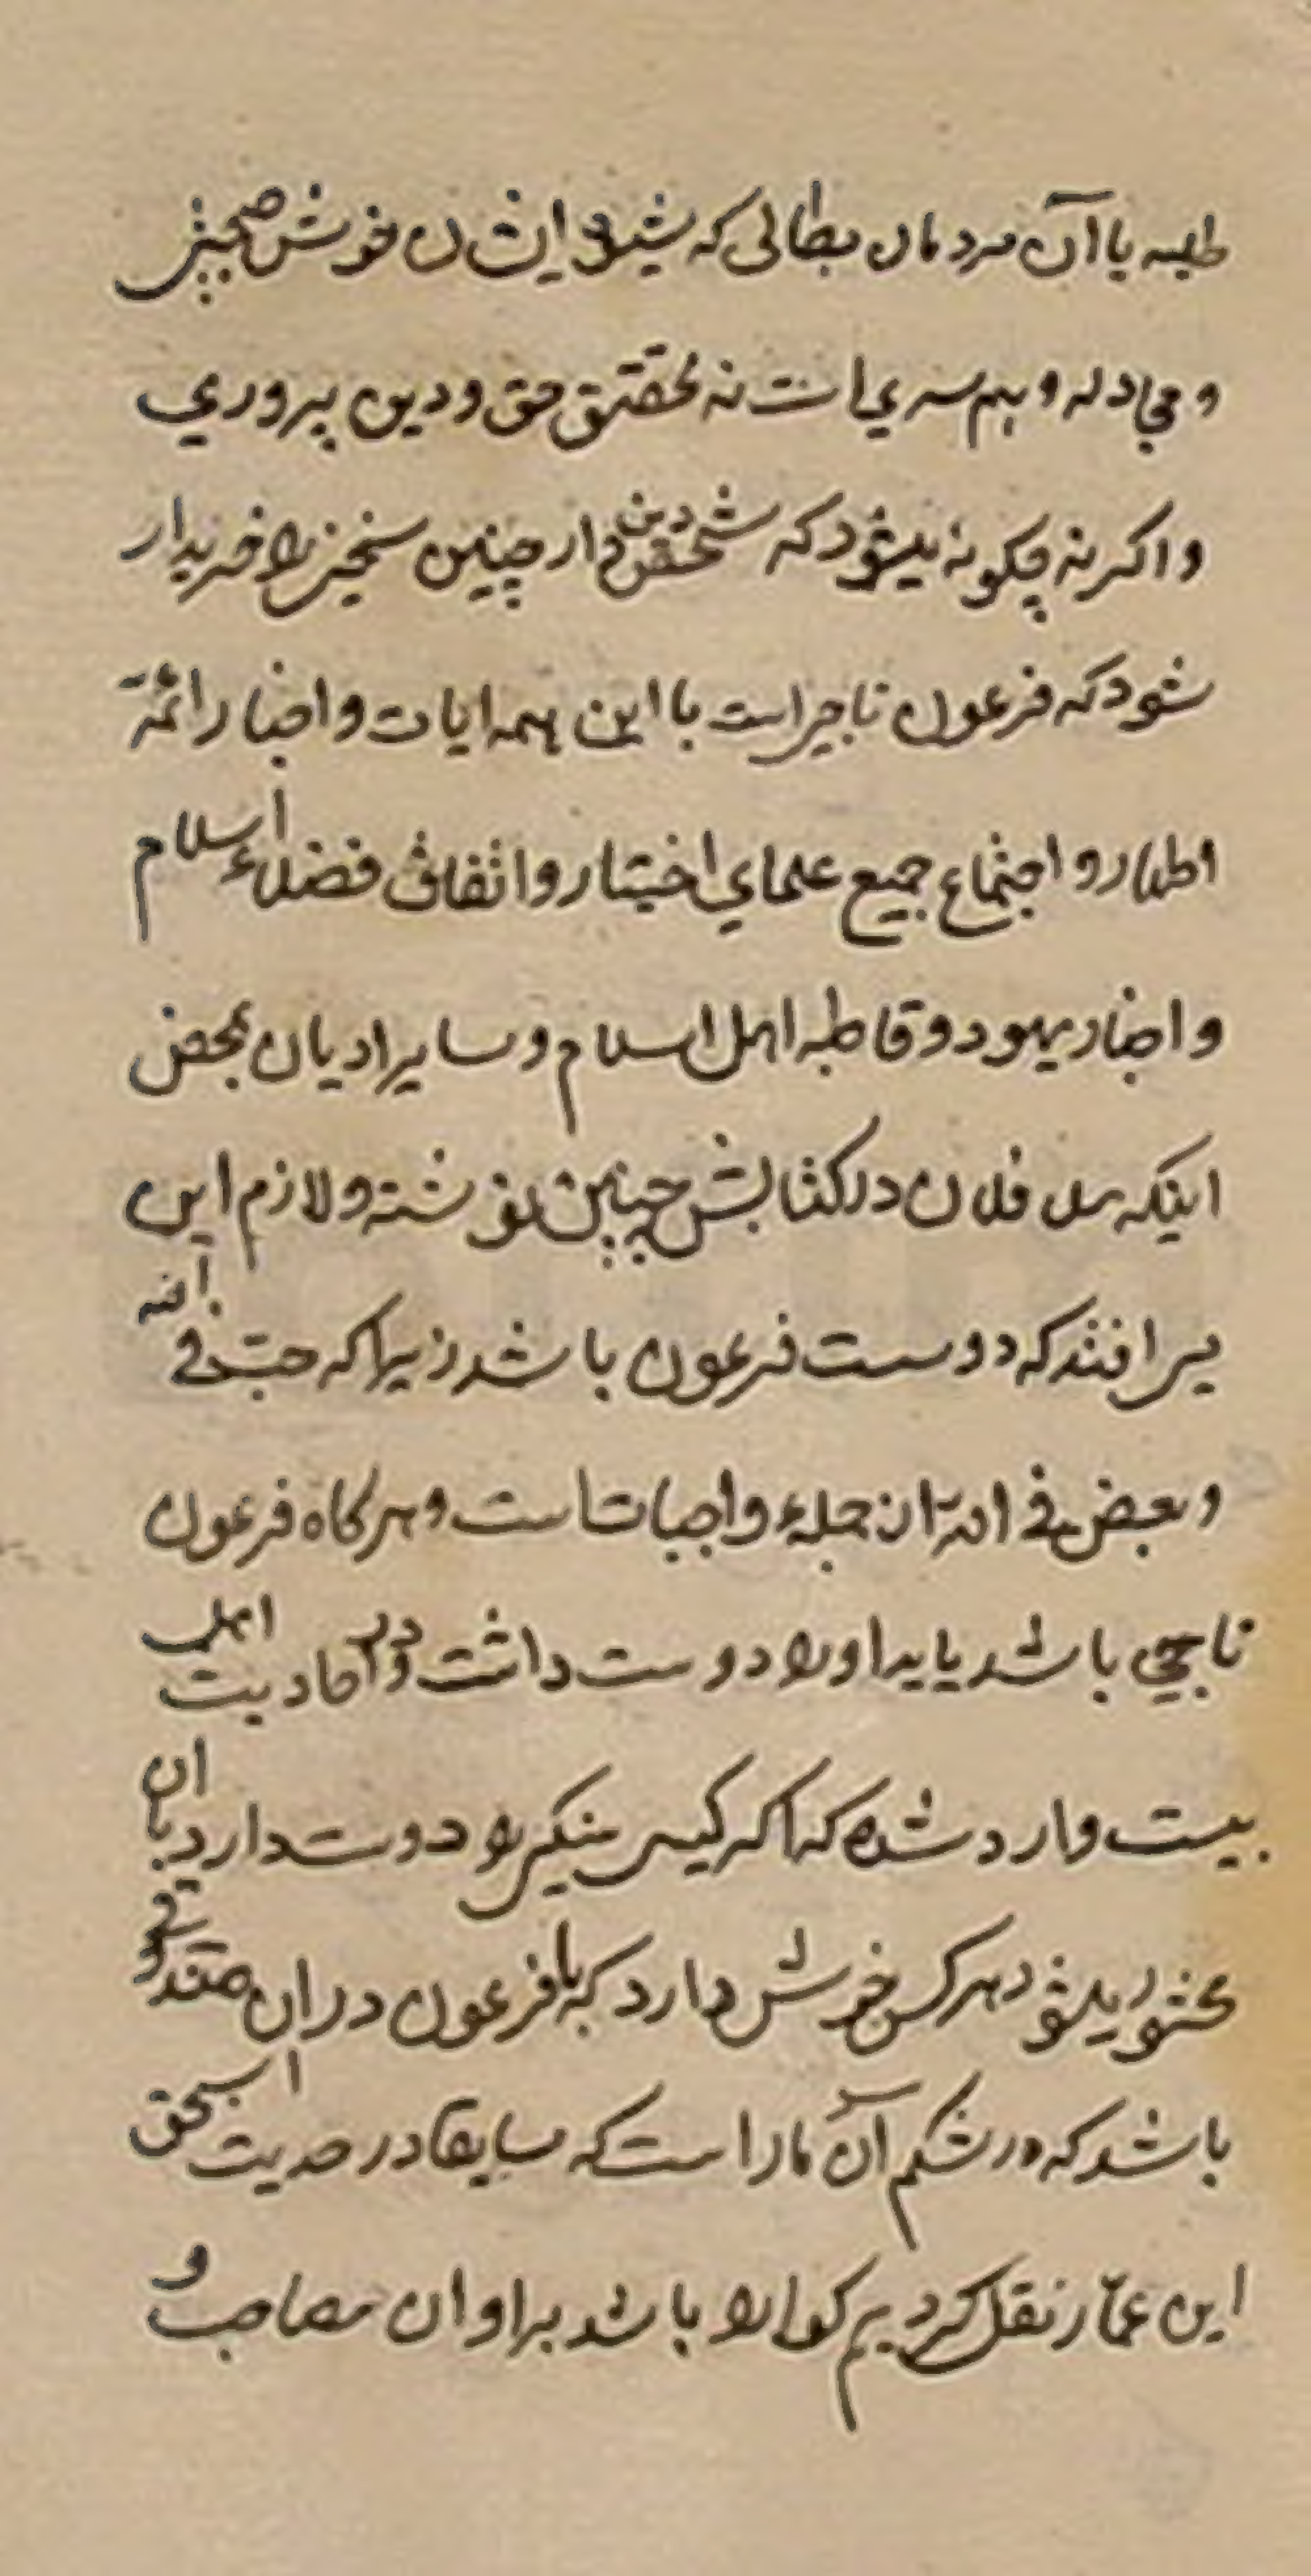 طلبه یا آن مردمان بطالی که شیوه ایشان خوش صحبتی
و مجادله و هم سری است نه تحقیق حق و دین پروری
و اکر نه چکونه میشود که شخص دین دار چنین سخنی را خریدار
شود که فرعون ناجی است با این همه ایات و اخبار ائمّه
اطهار و اجتماع جمیع علمای اختیار و اتفاق فضلاء اسلام
و احبار یهود و قاطبه اهل اسلام و سایر ادیان بمحض
اینکه فلان در کتابش چنین نوشته و لازم این
می افتد که دوست فرعون باشد زیرا که حبّ فی الله
و بعض فی الله از جمله واجبات است و هر کاه فرعون
ناجی باشد باید او را دوست داشت و در احادیث اهل
بیت وارد شده که اکر کسی سنکی را دوست دارد با ان
محشور میشود هر کس خوش دارد که با فرعون در ان صندوقی
باشد که در شکم آن مار است که سابقا در حدیث اسحق
ابن عمّار نقل کردیم کوارا باشد بر او ان مصاحبت و